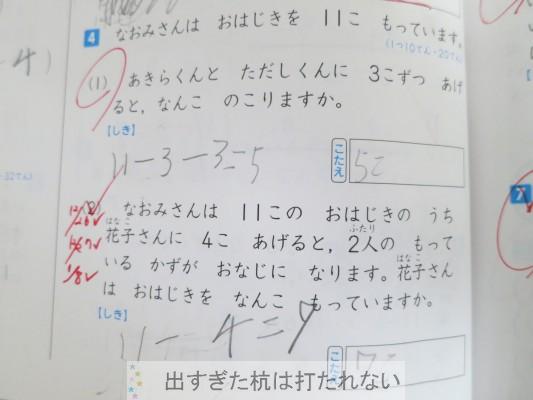 4 なおみさんは おはじきを 11こ もっています。
(1つ10てん・20てん)
(1) あきらくんと ただしくんに 3こずつ あげ
ると，なんこ のこりますか。
【しき】
11-3-3=5
こたえ 5こ
(2) なおみさんは 11この おはじきの うち
花子さんに 4こ あげると，2人の もって
はなこ
ふたり
いる かずが おなじに なります。花子さん
はなこ
は おはじきを なんこ もっていますか。
【しき】
11-4=7
こたえ 7こ
-4)
32てん)
7
出すぎた杭は打たれない